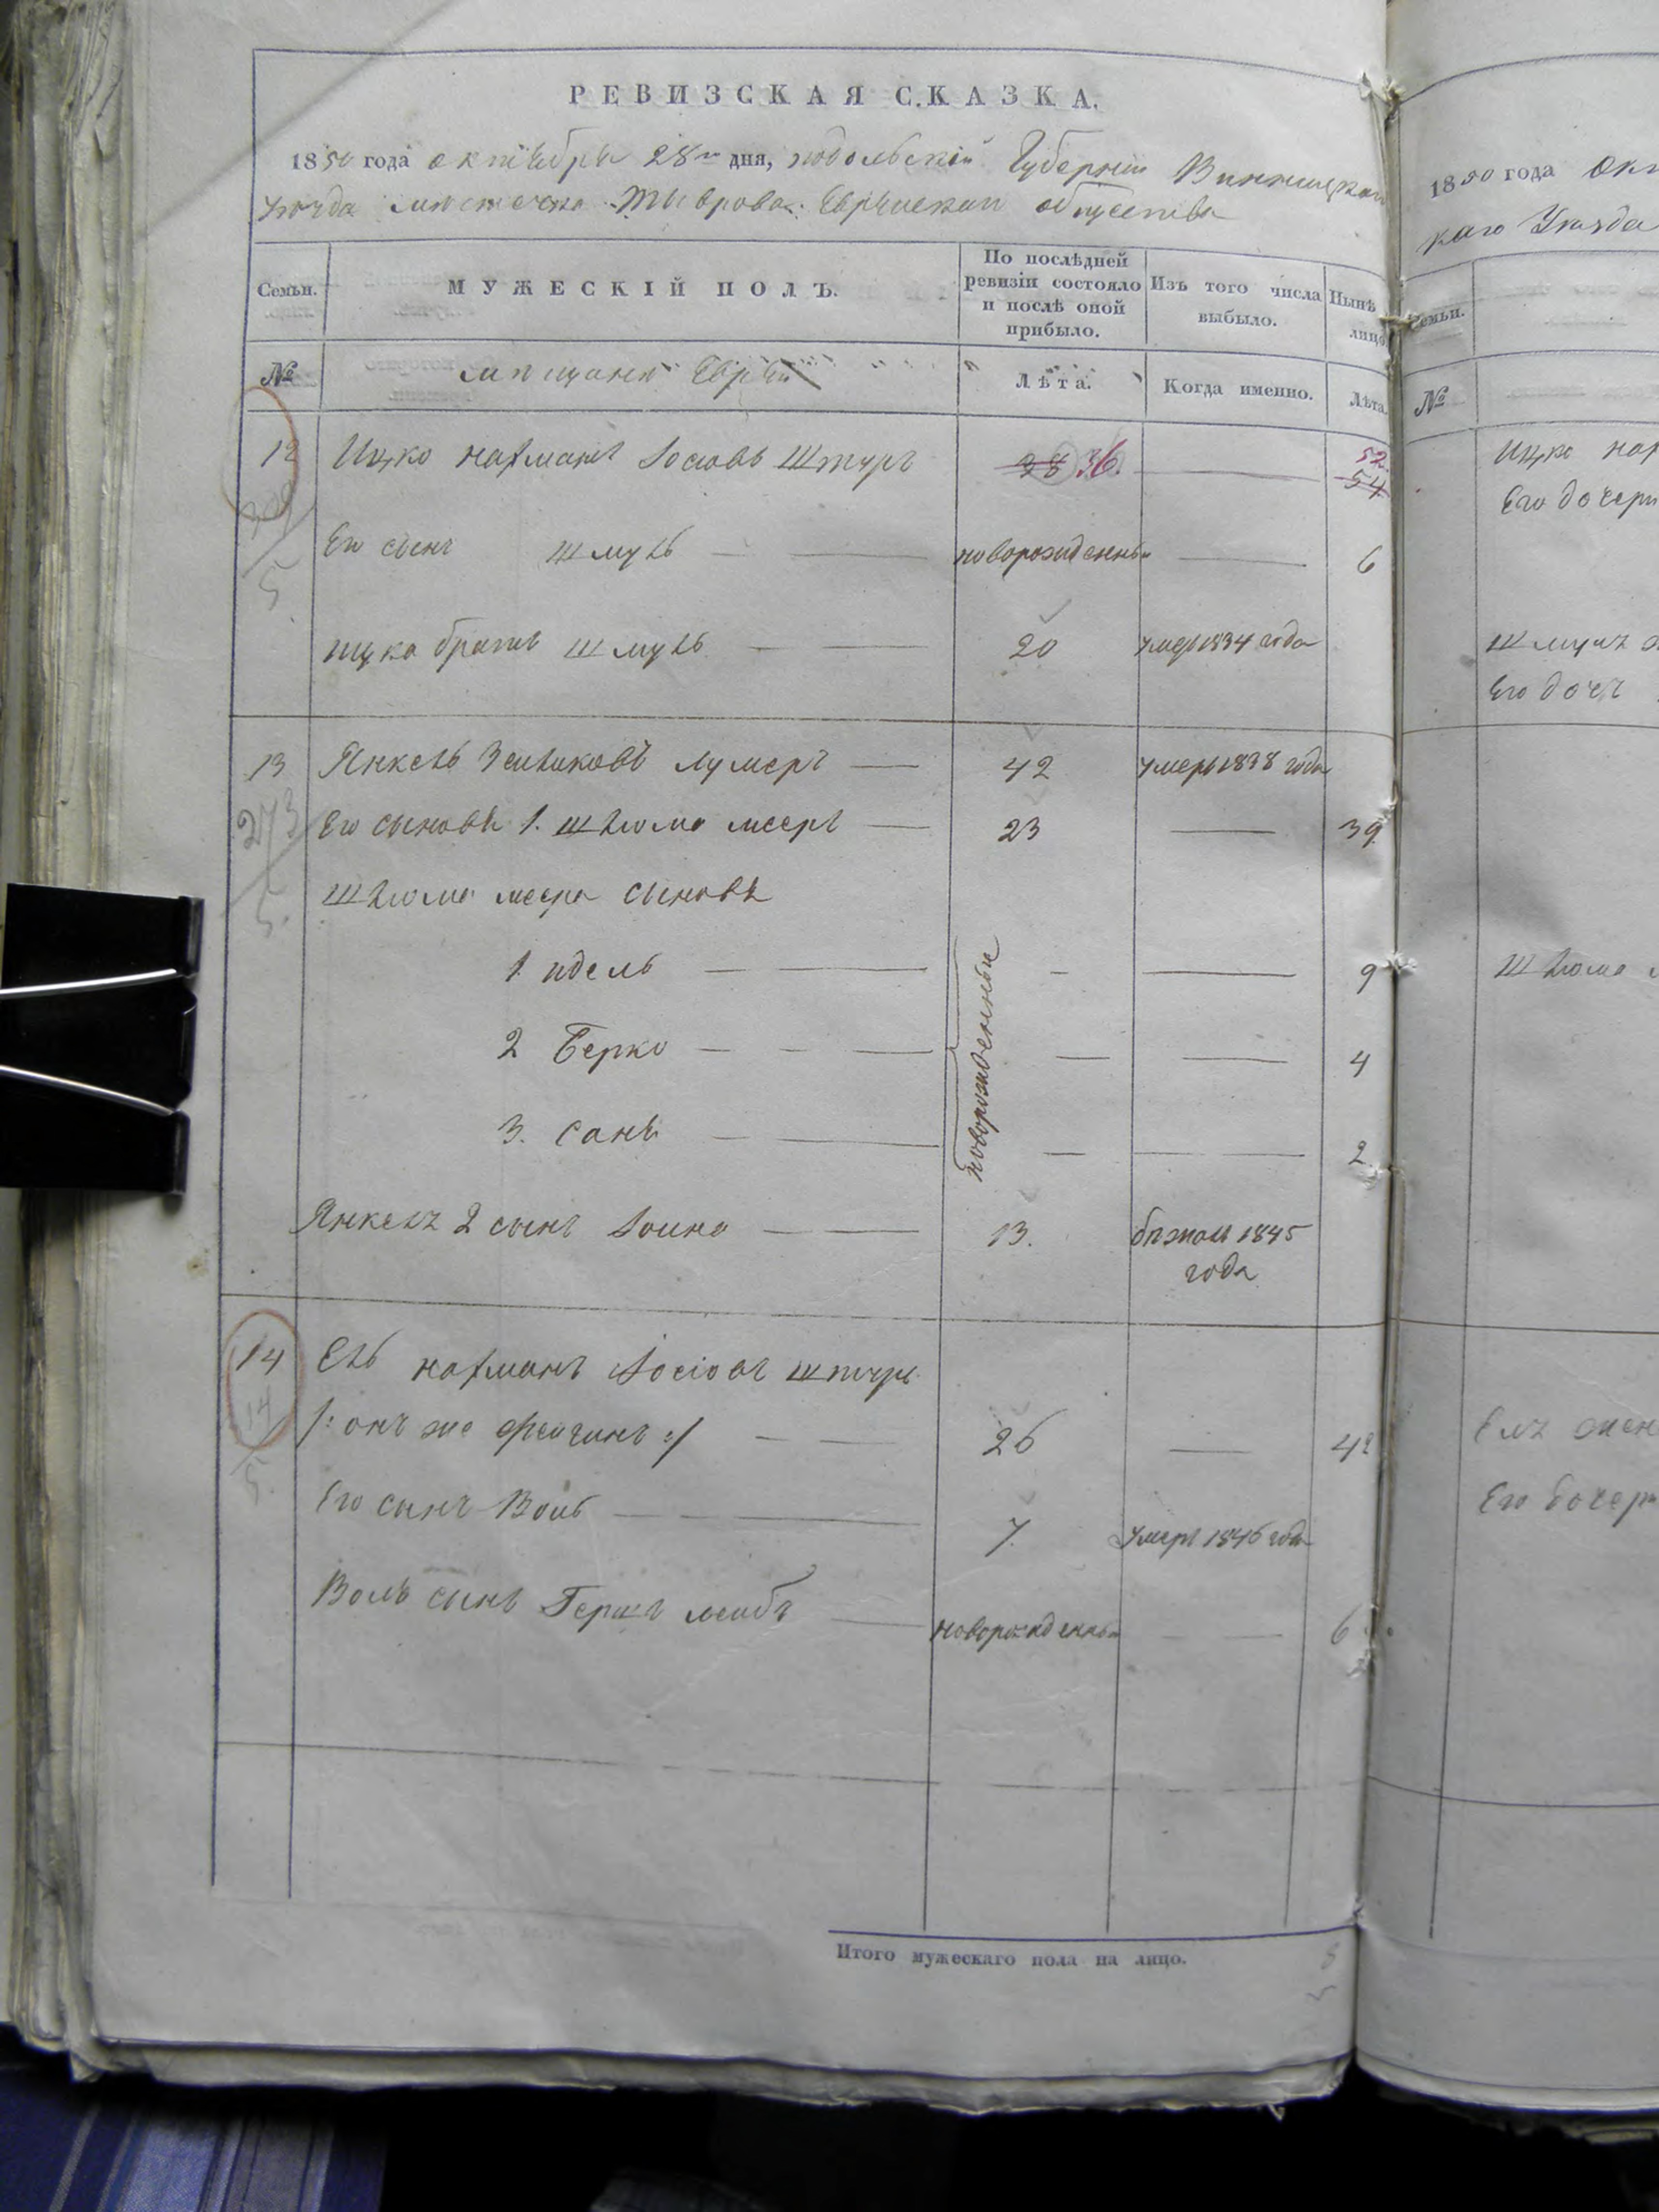 РЕВИЗСКАЯ СКАЗКА.
1850 года октября 28го дня, подольской Губернии Винницкого
уезда местечка Тыврова Еврейскаго общества
Семьи. МУЖЕСКІЙ ПОЛЪ. По послѣдней ревизіи состояло и послѣ оной прибыло. Изъ того числа выбыло. Нынѣ на лицо
№ мещане Евреи Лѣта. Когда именно. Лѣта.
12 Ицко нахманъ Iосiовъ Штуръ 28 36. 52. 54
Его сынъ Шмуль новорожденный 6
ицка братъ шмуль 20 умеръ 1834 года
13 Янкель Зейликовъ 42 умеръ 1838 года
273 Его сыновя 1. Шлiома мееръ 23 39
5.
Шлiома меера сыновя
1 идель новорожденныи 9
2 Берко 4
3. Сань 2
Янкеля 2 сынъ Iойна 13. бежалъ 1845
года
14 Ель нахманъ Iосiовъ штуръ
14 /: онъ же фейгинъ :/ 26 42
5.
Его сынъ Воль 7. умеръ 1846 года
Воля сынъ Гершъ лейбъ новорожденный 6
Итого мужескаго пола на лицо. 5
1850 года
каго Уезда
Семьи.
№
Ицко
Его дочери
Его дочь
Шлiома
Его дочери